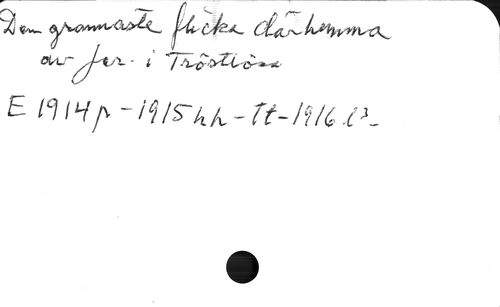 Den grannaste flicka därhemma
av Jer. i Tröstlösa
E 1914 p - 1915 hh - Tt - 1916 l3 -